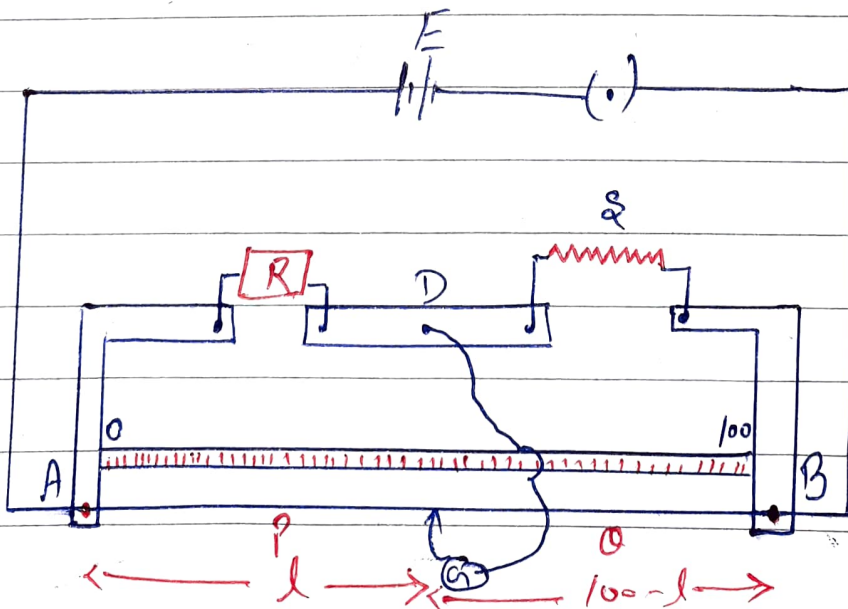 E
(.)
S
R
D
0
100
A
B
P
Q
G
l
100-l